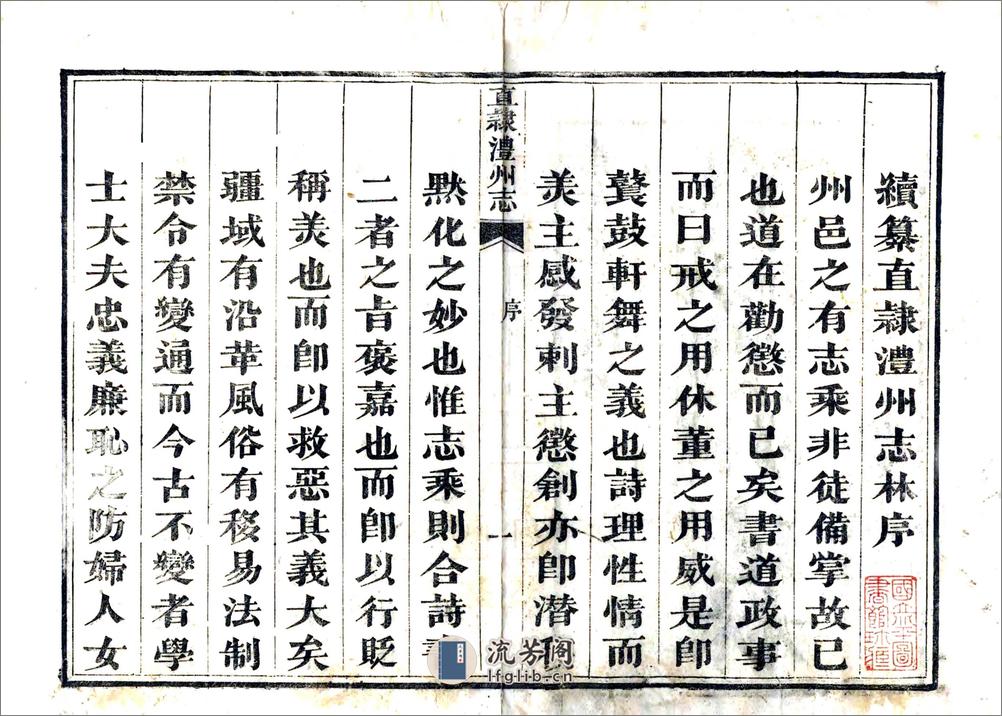 續纂直隷澧州志林序
州邑之有志乘非徒備掌故已
也道在勸懲而已矣書道政事
而曰戒之用休董之用威是卽
鼚鼓軒舞之義也詩理性情而
羙主感發刺主懲創亦卽潛移
直隷澧州志
序
一
默化之妙也惟志乘則合詩書
二者之旨褒嘉也而卽以行貶
稱羙也而卽以救惡其義大矣
疆域有沿革風俗有移易法制
禁令有變通而今古不變者學
士大夫忠義廉恥之防婦人女
國立北平圖
書館收藏
流芳阁
lfglib.cn